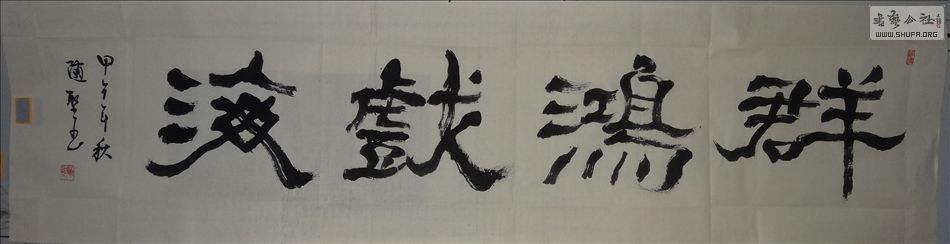 群鴻戲海
甲午年秋
聖書
書艺公社
WWW.SHUFA.ORG